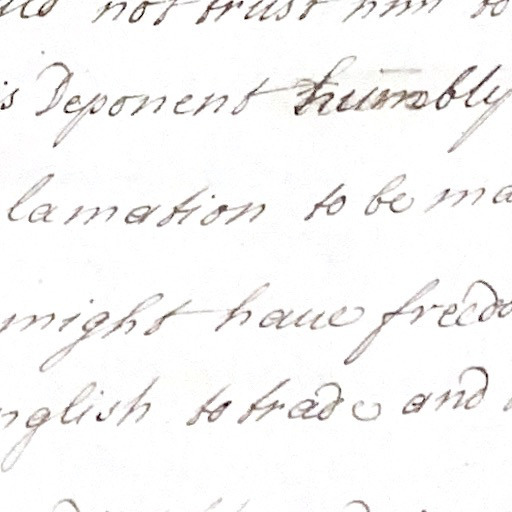 not trust him to
is Deponent humbly
lamation to be ma
might haue freedo
nglish to trade and